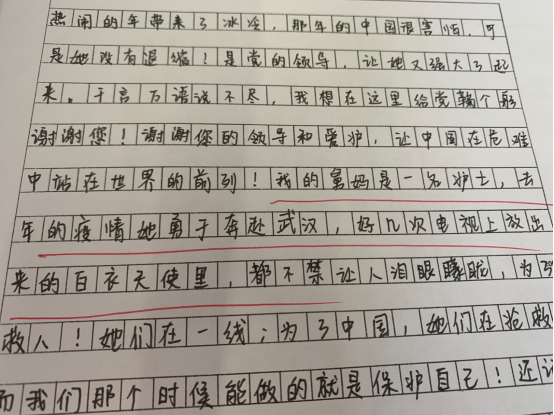 热闹的年带来了冰冷，那年的中国很害怕，可
是她没有退缩！是党的领导，让她又强大了起
来。千言万语说不尽，我想在这里给党鞠个躬
谢谢您！谢谢您的领导和爱护，让中国在危难
中站在世界的前列！我的舅妈是一名护士，去
年的疫情她勇于奔赴武汉，好几次电视上放出
来的白衣天使里，都不禁让人泪眼朦胧，为了
救人！她们在一线；为了中国，她们在抢救
而我们那个时候能做的就是保护自己！还记